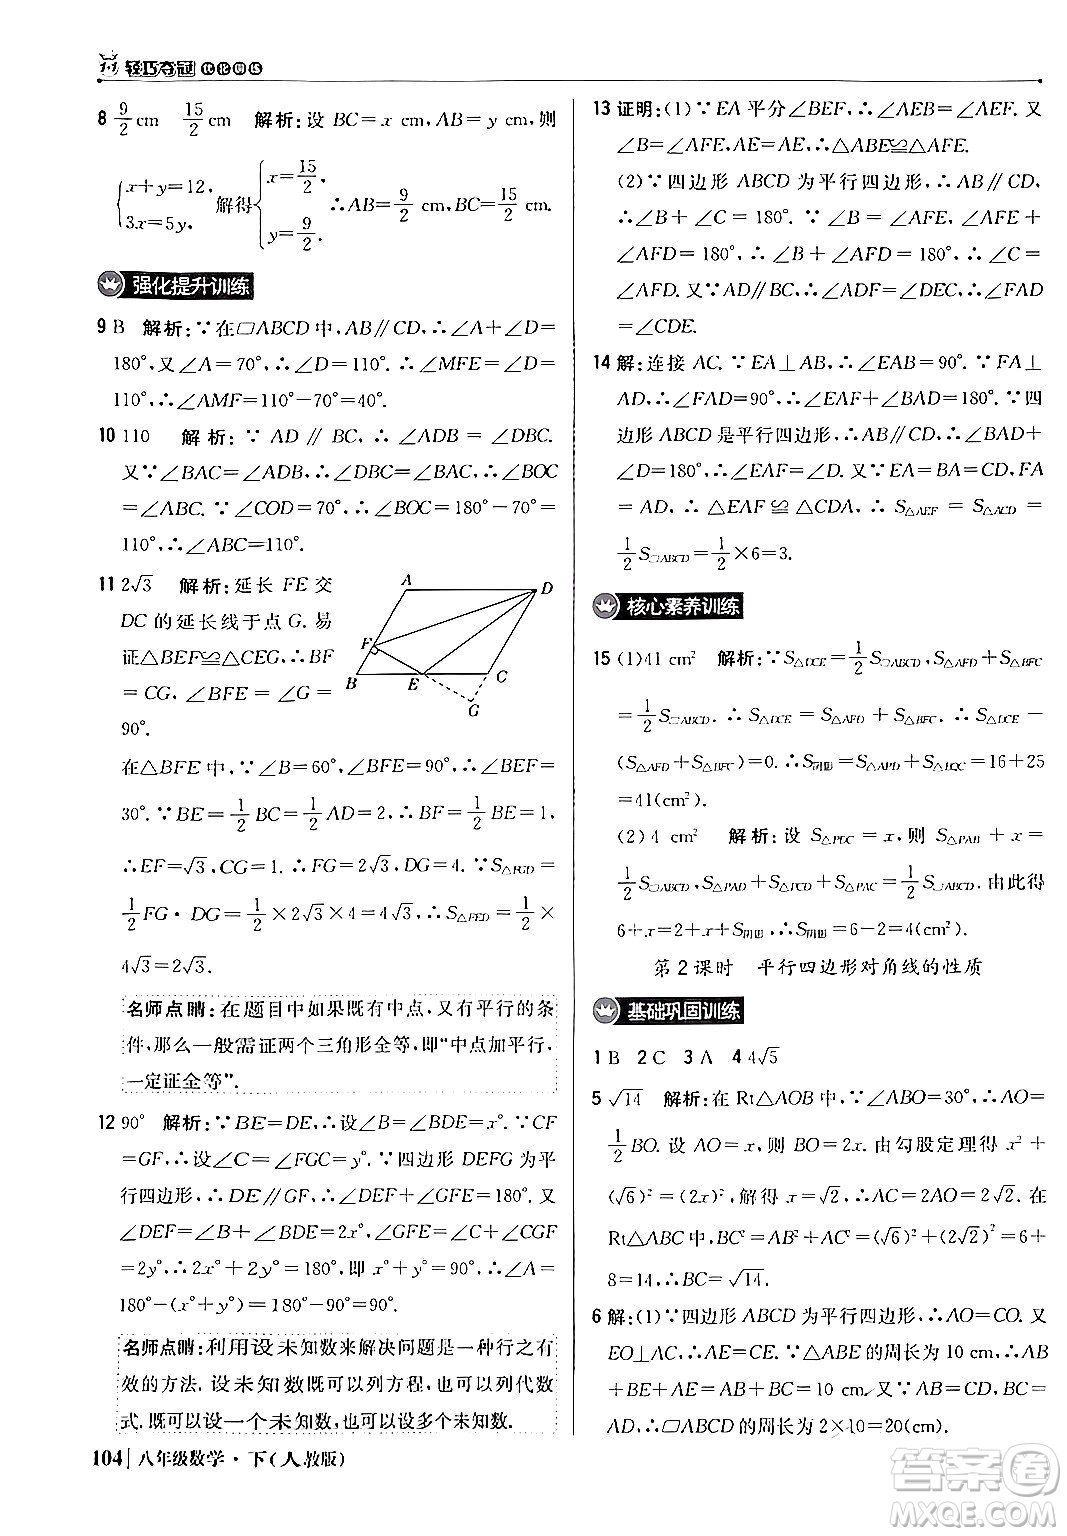 轻巧夺冠 优化训练
8 9/2 cm 15/2 cm 解析:设 BC=x cm,AB=y cm,则
{x+y=12, 3x=5y, 解得{x=15/2, y=9/2. ∴AB=9/2 cm,BC=15/2 cm.
强化提升训练
9 B 解析:∵在□ABCD中,AB∥CD,∴∠A+∠D=
180°,又∠A=70°,∴∠D=110°,∴∠MFE=∠D=
110°,∴∠AMF=110°-70°=40°.
10 110 解析:∵AD∥BC,∴∠ADB=∠DBC.
又∵∠BAC=∠ADB,∴∠DBC=∠BAC,∴∠BOC
=∠ABC.∵∠COD=70°,∴∠BOC=180°-70°=
110°,∴∠ABC=110°.
11 2√3 解析:延长 FE 交
DC 的延长线于点 G.易
证△BEF≌△CEG,∴BF
=CG,∠BFE=∠G=
90°.
A D F B E C G
在△BFE中,∵∠B=60°,∠BFE=90°,∴∠BEF=
30°.∵BE=1/2 BC=1/2 AD=2,∴BF=1/2 BE=1,
∴EF=√3,CG=1.∴FG=2√3,DG=4.∵S△FGD=
1/2 FG·DG=1/2×2√3×4=4√3,∴S△FED=1/2×
4√3=2√3.
名师点睛:在题目中如果既有中点,又有平行的条
件,那么一般需证两个三角形全等,即“中点加平行,
一定证全等”.
12 90° 解析:∵BE=DE,∴设∠B=∠BDE=x°.∵CF
=GF,∴设∠C=∠FGC=y°.∵四边形 DEFG 为平
行四边形,∴DE∥GF,∴∠DEF+∠GFE=180°.又
∠DEF=∠B+∠BDE=2x°,∠GFE=∠C+∠CGF
=2y°,∴2x°+2y°=180°,即 x°+y°=90°,∴∠A=
180°-(x°+y°)=180°-90°=90°.
名师点睛:利用设未知数来解决问题是一种行之有
效的方法.设未知数既可以列方程,也可以列代数
式.既可以设一个未知数,也可以设多个未知数.
104 八年级数学·下(人教版)
13 证明:(1)∵EA 平分∠BEF,∴∠AEB=∠AEF.又
∠B=∠AFE,AE=AE,∴△ABE≌△AFE.
(2)∵四边形 ABCD 为平行四边形,∴AB∥CD,
∴∠B+∠C=180°.∵∠B=∠AFE,∠AFE+
∠AFD=180°,∴∠AFD=∠C.
∵AD∥BC,∴∠ADF=∠DEC,∴∠FAD
=∠CDE.
14 解:连接 AC.∵EA⊥AB,∴∠EAB=90°.∵FA⊥
AD,∴∠FAD=90°,∴∠EAF+∠BAD=180°.∵四
边形 ABCD 是平行四边形,∴AB∥CD,∴∠BAD+
∠D=180°,∴∠EAF=∠D.又∵EA=BA=CD,FA
=AD,∴△EAF≌△CDA,∴S△AEF=S△ACD=
1/2 S□ABCD=1/2×6=3.
核心素养训练
15 (1)41 cm² 解析:∵S△DCE=1/2 S□ABCD,S△AFD+S△BFC
=1/2 S□ABCD,∴S△DCE=S△AFD+S△BFC.∴S△DCE-
(S△AFD+S△BFC)=0.∴S阴影=S△APD+S△BQC=16+25
=41(cm²).
(2)4 cm² 解析:设 S△PEC=x,则 S△PAB+x=
1/2 S□ABCD,S△PAD+S△PCD+S△PAC=1/2 S□ABCD.由此得
6+x=2+x+S阴影,∴S阴影=6-2=4(cm²).
第2课时 平行四边形对角线的性质
基础巩固训练
1 B 2 C 3 A 4 4√5
5 √14 解析:在 Rt△AOB 中,∵∠ABO=30°,∴AO=
1/2 BO.设 AO=x,则 BO=2x.由勾股定理得 x²+
(√6)²=(2x)²,解得 x=√2,∴AC=2AO=2√2.在
Rt△ABC 中,∵BC²=AB²+AC²=(√6)²+(2√2)²=6+
8=14,∴BC=√14.
6 解:(1)∵四边形 ABCD 为平行四边形,∴AO=CO.又
EO⊥AC,∴AE=CE.∵△ABE 的周长为 10 cm,∴AB
+BE+AE=AB+BE+CE=AB+BC=10 cm.又∵BC=
AD,∴□ABCD 的周长为 2×10=20(cm).
答案圈
MXQE.COM